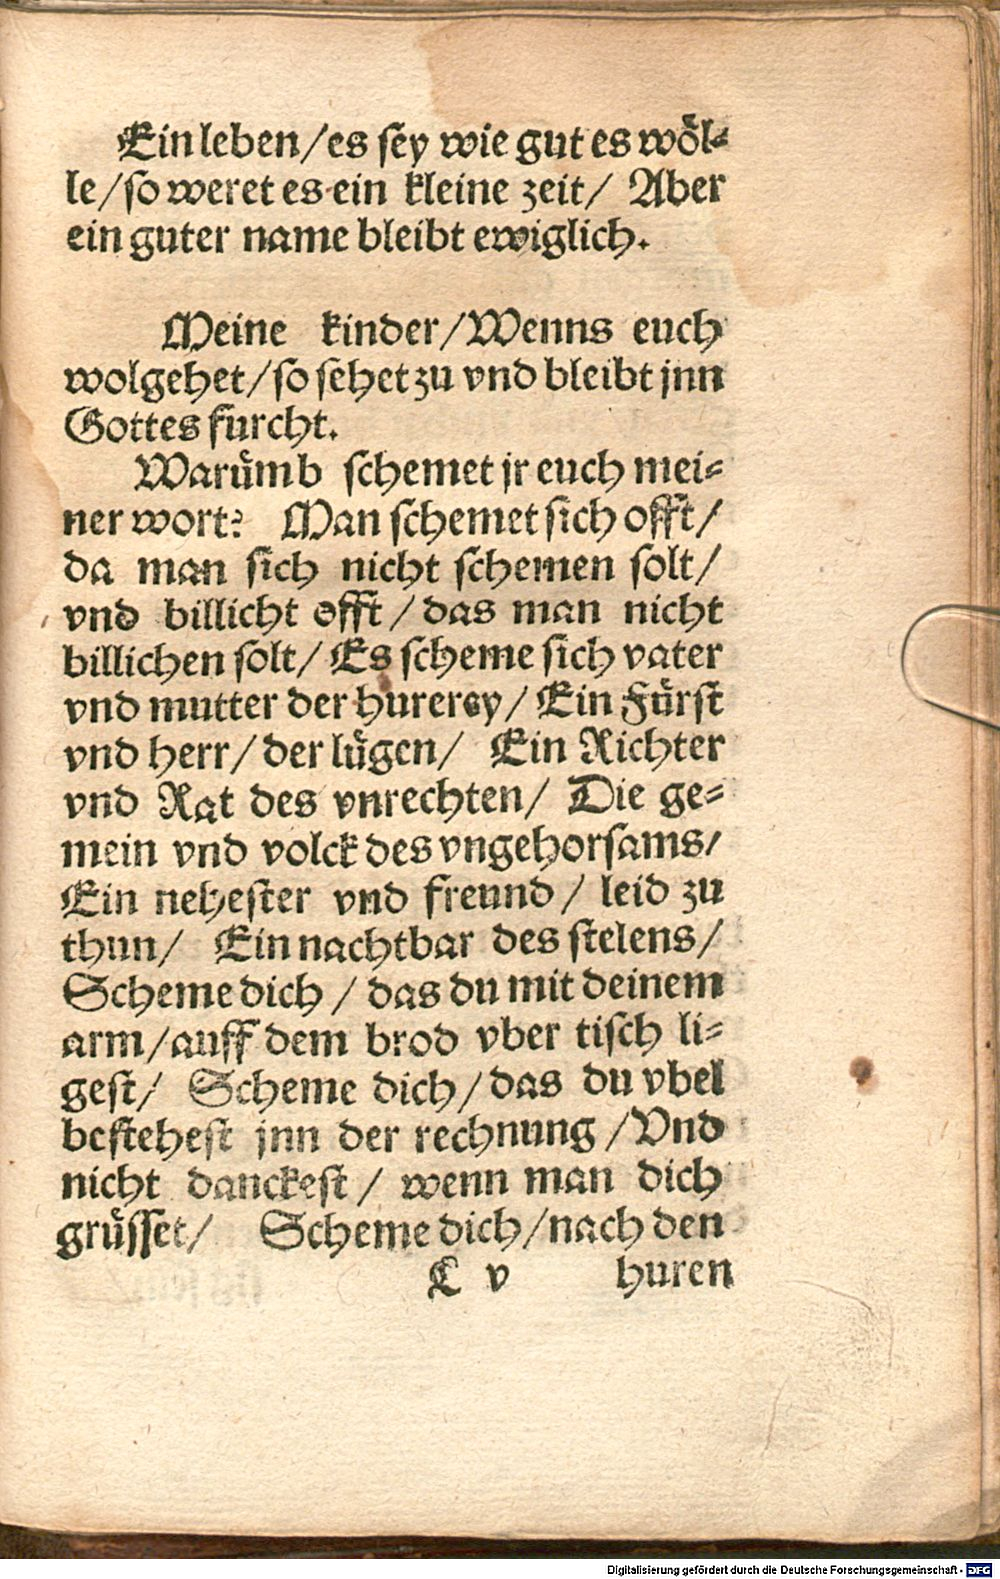 Ein leben/es sey wie gut es wöl⸗
le/so weret es ein kleine zeit/ Aber
ein guter name bleibt ewiglich.
Meine kinder/Wenns euch
wolgehet/so sehet zu vnd bleibt jnn
Gottes furcht.
Warümb schemet jr euch mei⸗
ner wort? Man schemet sich offt/
da man sich nicht schemen solt/
vnd billicht offt/das man nicht
billichen solt/ Es scheme sich vater
vnd mutter der hurerey/ Ein Fürst
vnd herr/der lügen/ Ein Richter
vnd Rat des vnrechten/ Die ge⸗
mein vnd volck des vngehorsams/
Ein nehester vnd freund/ leid zu
thun/ Ein nachtbar des stelens/
Scheme dich/das du mit deinem
arm/auff dem brod vber tisch li⸗
gest/ Scheme dich/das du vbel
bestehest jnn der rechnung/Vnd
nicht danckest/ wenn man dich
grüsset/ Scheme dich/nach den
C v huren
Digitalisierung gefördert durch die Deutsche Forschungsgemeinschaft - DFG